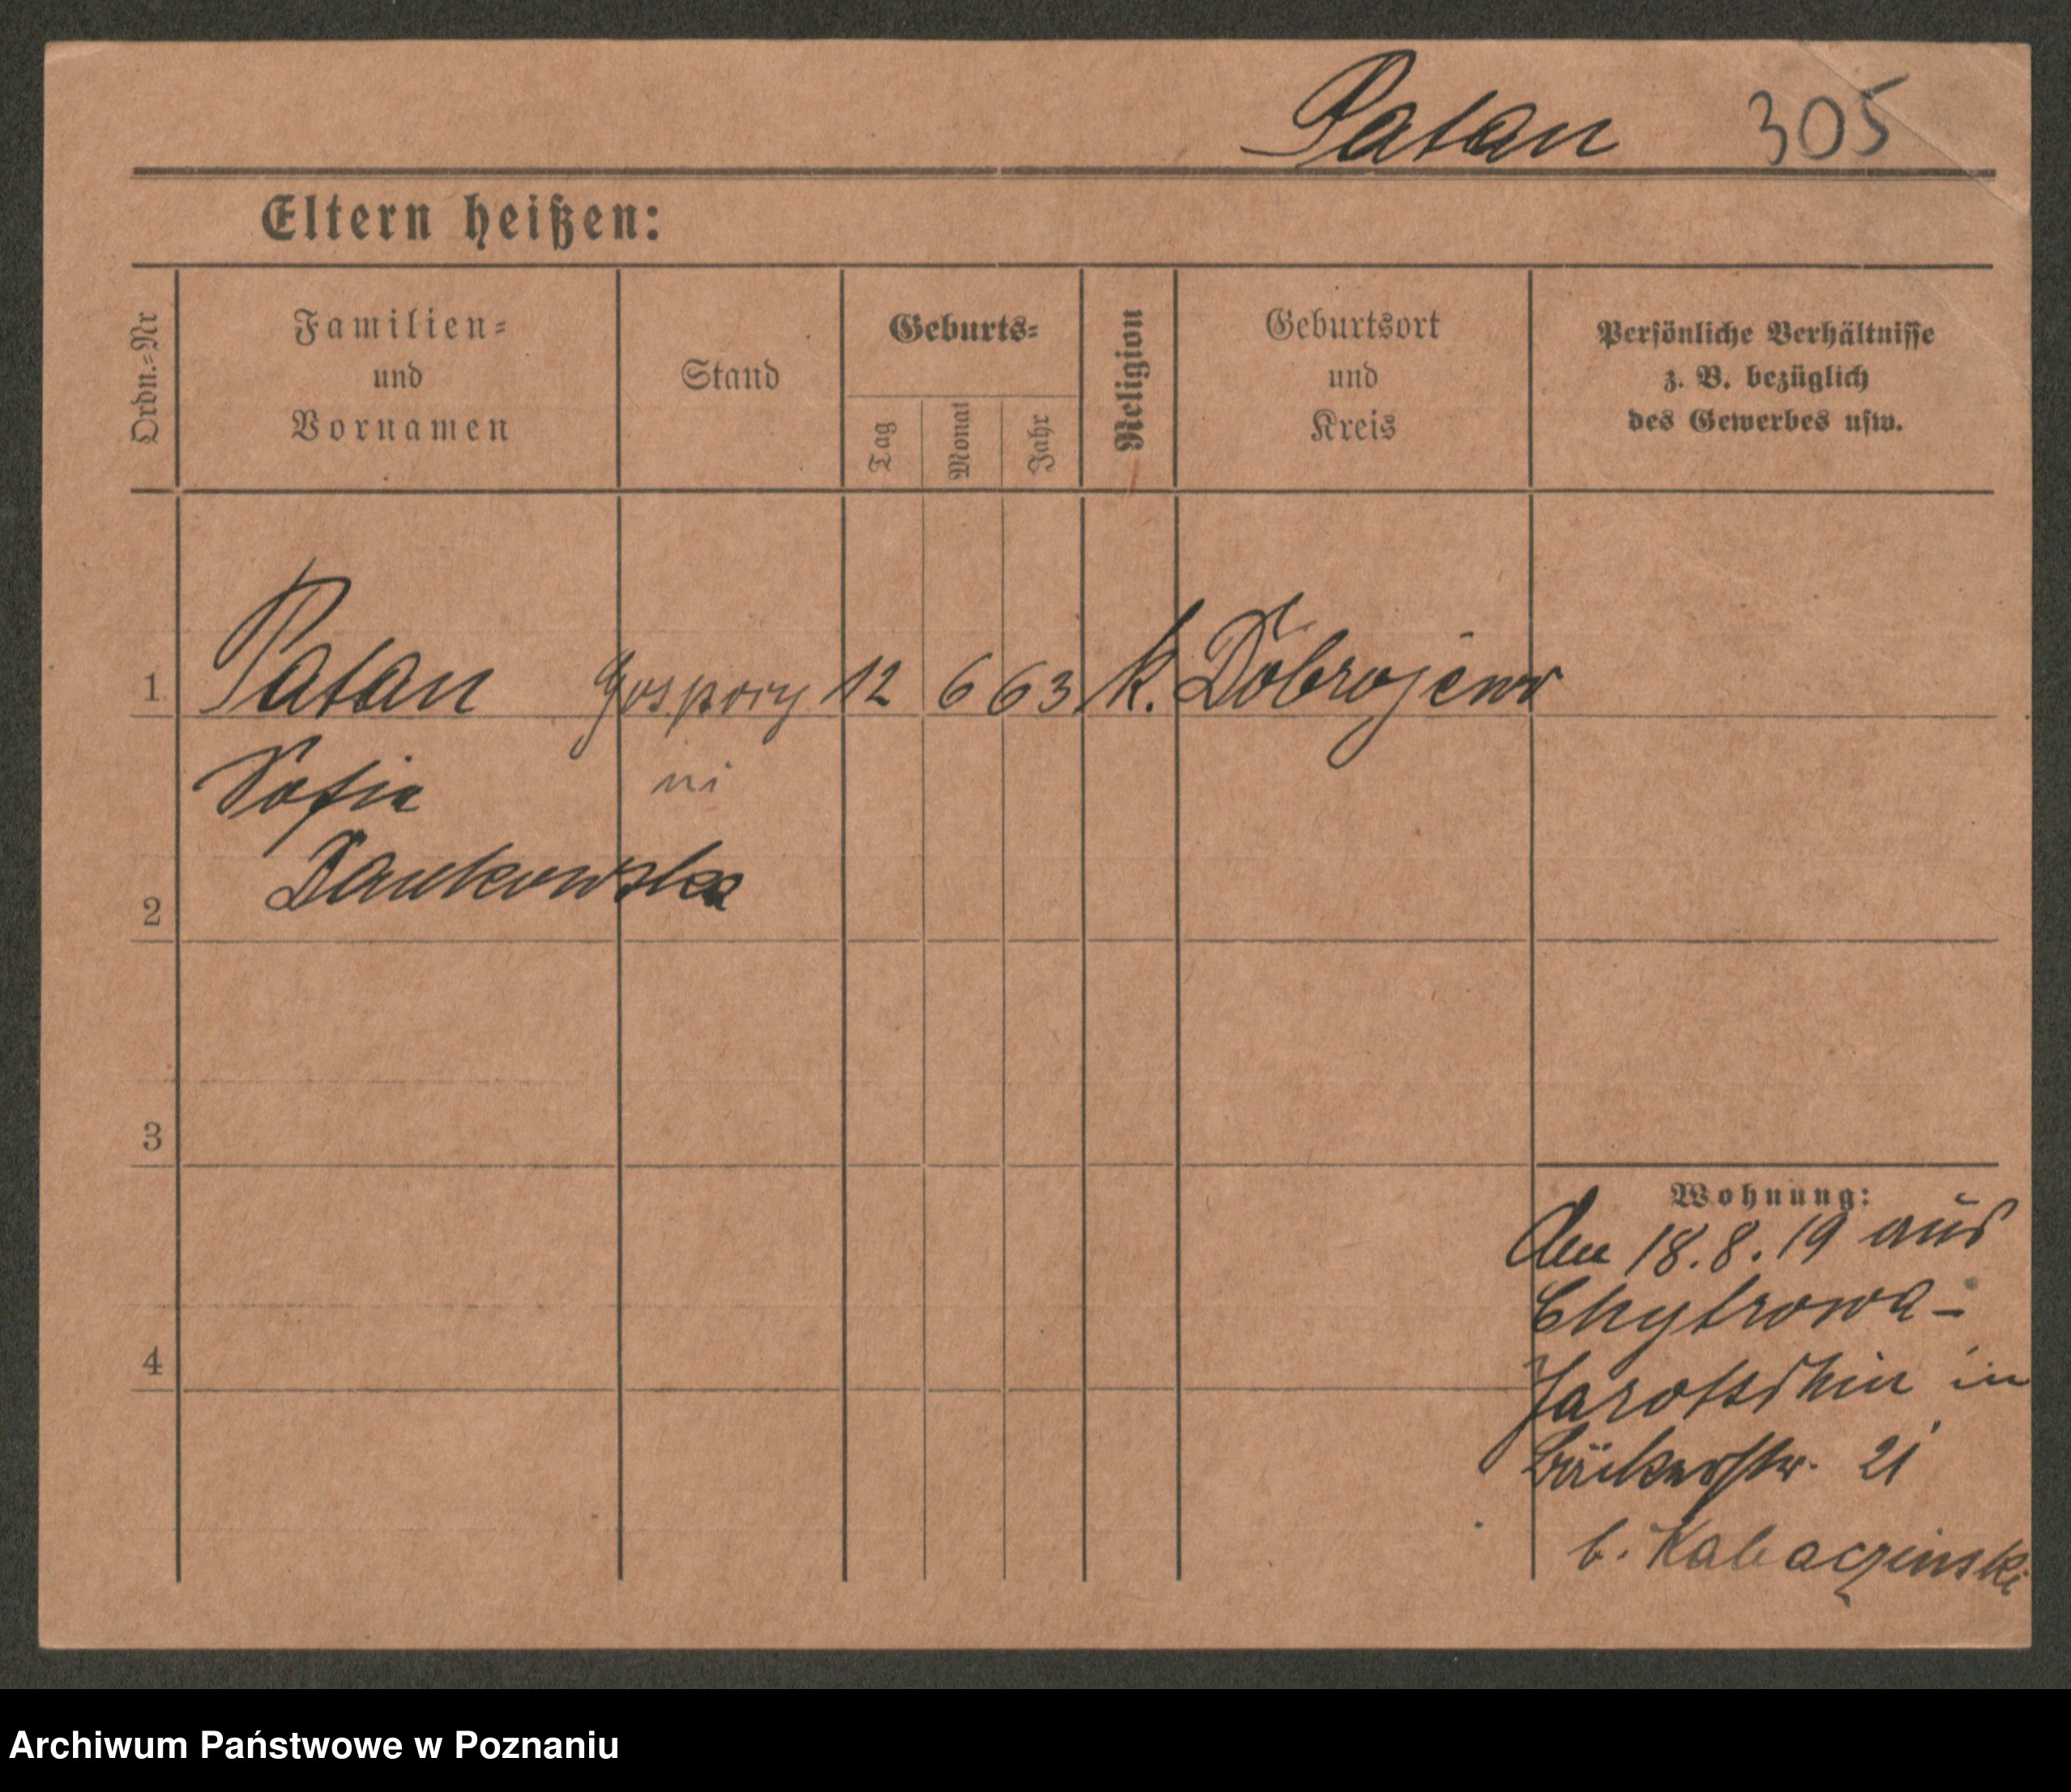 Patan 305
Eltern heißen:
Ordn.=Nr
Familien=
und
Vornamen
Stand
Geburts=
Tag
Monat
Jahr
Religion
Geburtsort
und
Kreis
Persönliche Verhältnisse
z. B. bezüglich
des Gewerbes usw.
1 Patan Gospory 12 6 63 k. Dobrojewo
Sofia ni
2 Dankowska
3
4
Wohnung:
Am 18.8.19 aus
Chytrowa-
Jarotschin in
Bäckerstr. 21
b. Kabaczinski
Archiwum Państwowe w Poznaniu